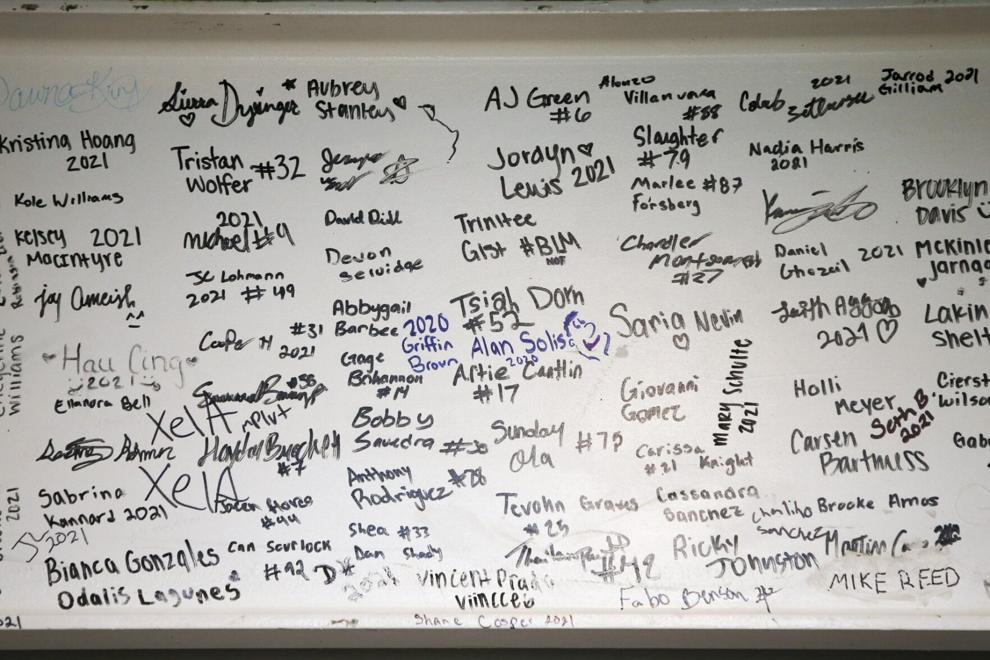 Kristina Hoang
2021
Kole Williams
Kelsey 2021
Macintyre
Jay
Hau Cing
2021
Ellanora Bell
Sabrina
Kannard 2021
2021
Bianca Gonzales
Odalis Lagunes
Sierra
Tristan #32
Wolfer
2021
Michael #9
JC Lohmann
2021 #49
#31
2021
XelA
XelA
#7
#44
Can Scurlock
#92
Aubrey
Stanley
David Dill
Devon
Selvidge
Abbygail
Barbee
Gage
Brihannon
#14
Bobby
Saavedra #50
Anthony
Rodriguez #78
Shea #33
Dan Shady
2020
Griffin
Brown
Alan Solis
2020
AJ Green
#6
Jordyn
Lewis 2021
Trinitee
Gist #BLM
Tsiah Dorn
#52
Artie Cantlin
#17
Sunday #75
Ola
Tevohn Graves
#25
#42
Vincent Prado
Viinccei
Shane Cooper 2021
Alonzo
Villanuara
#88
Slaughter
#79
Marlee #87
Forsberg
Chandler
Montgomery
#27
Saria Nevin
Giovanni
Gomez
Mary Schulte
2021
Carissa
#21 Knight
Cassandra
Sanchez
Sanchez
Ricky
Johnston
Fabo Benson
2021
Colab
Nadia Harris
2021
Daniel 2021
Ghezeil
Laith Aggad
2021
Holli
Meyer
Seth B
2021
Carsen
Bartmuss
Brooke Amos
Martin
MIKE REED
Jarrod 2021
Gilliam
Brooklyn
Davis
McKinle
Jarnag
Lakin
Shelt
Cierst
Wilso
Gab
Williams
2021